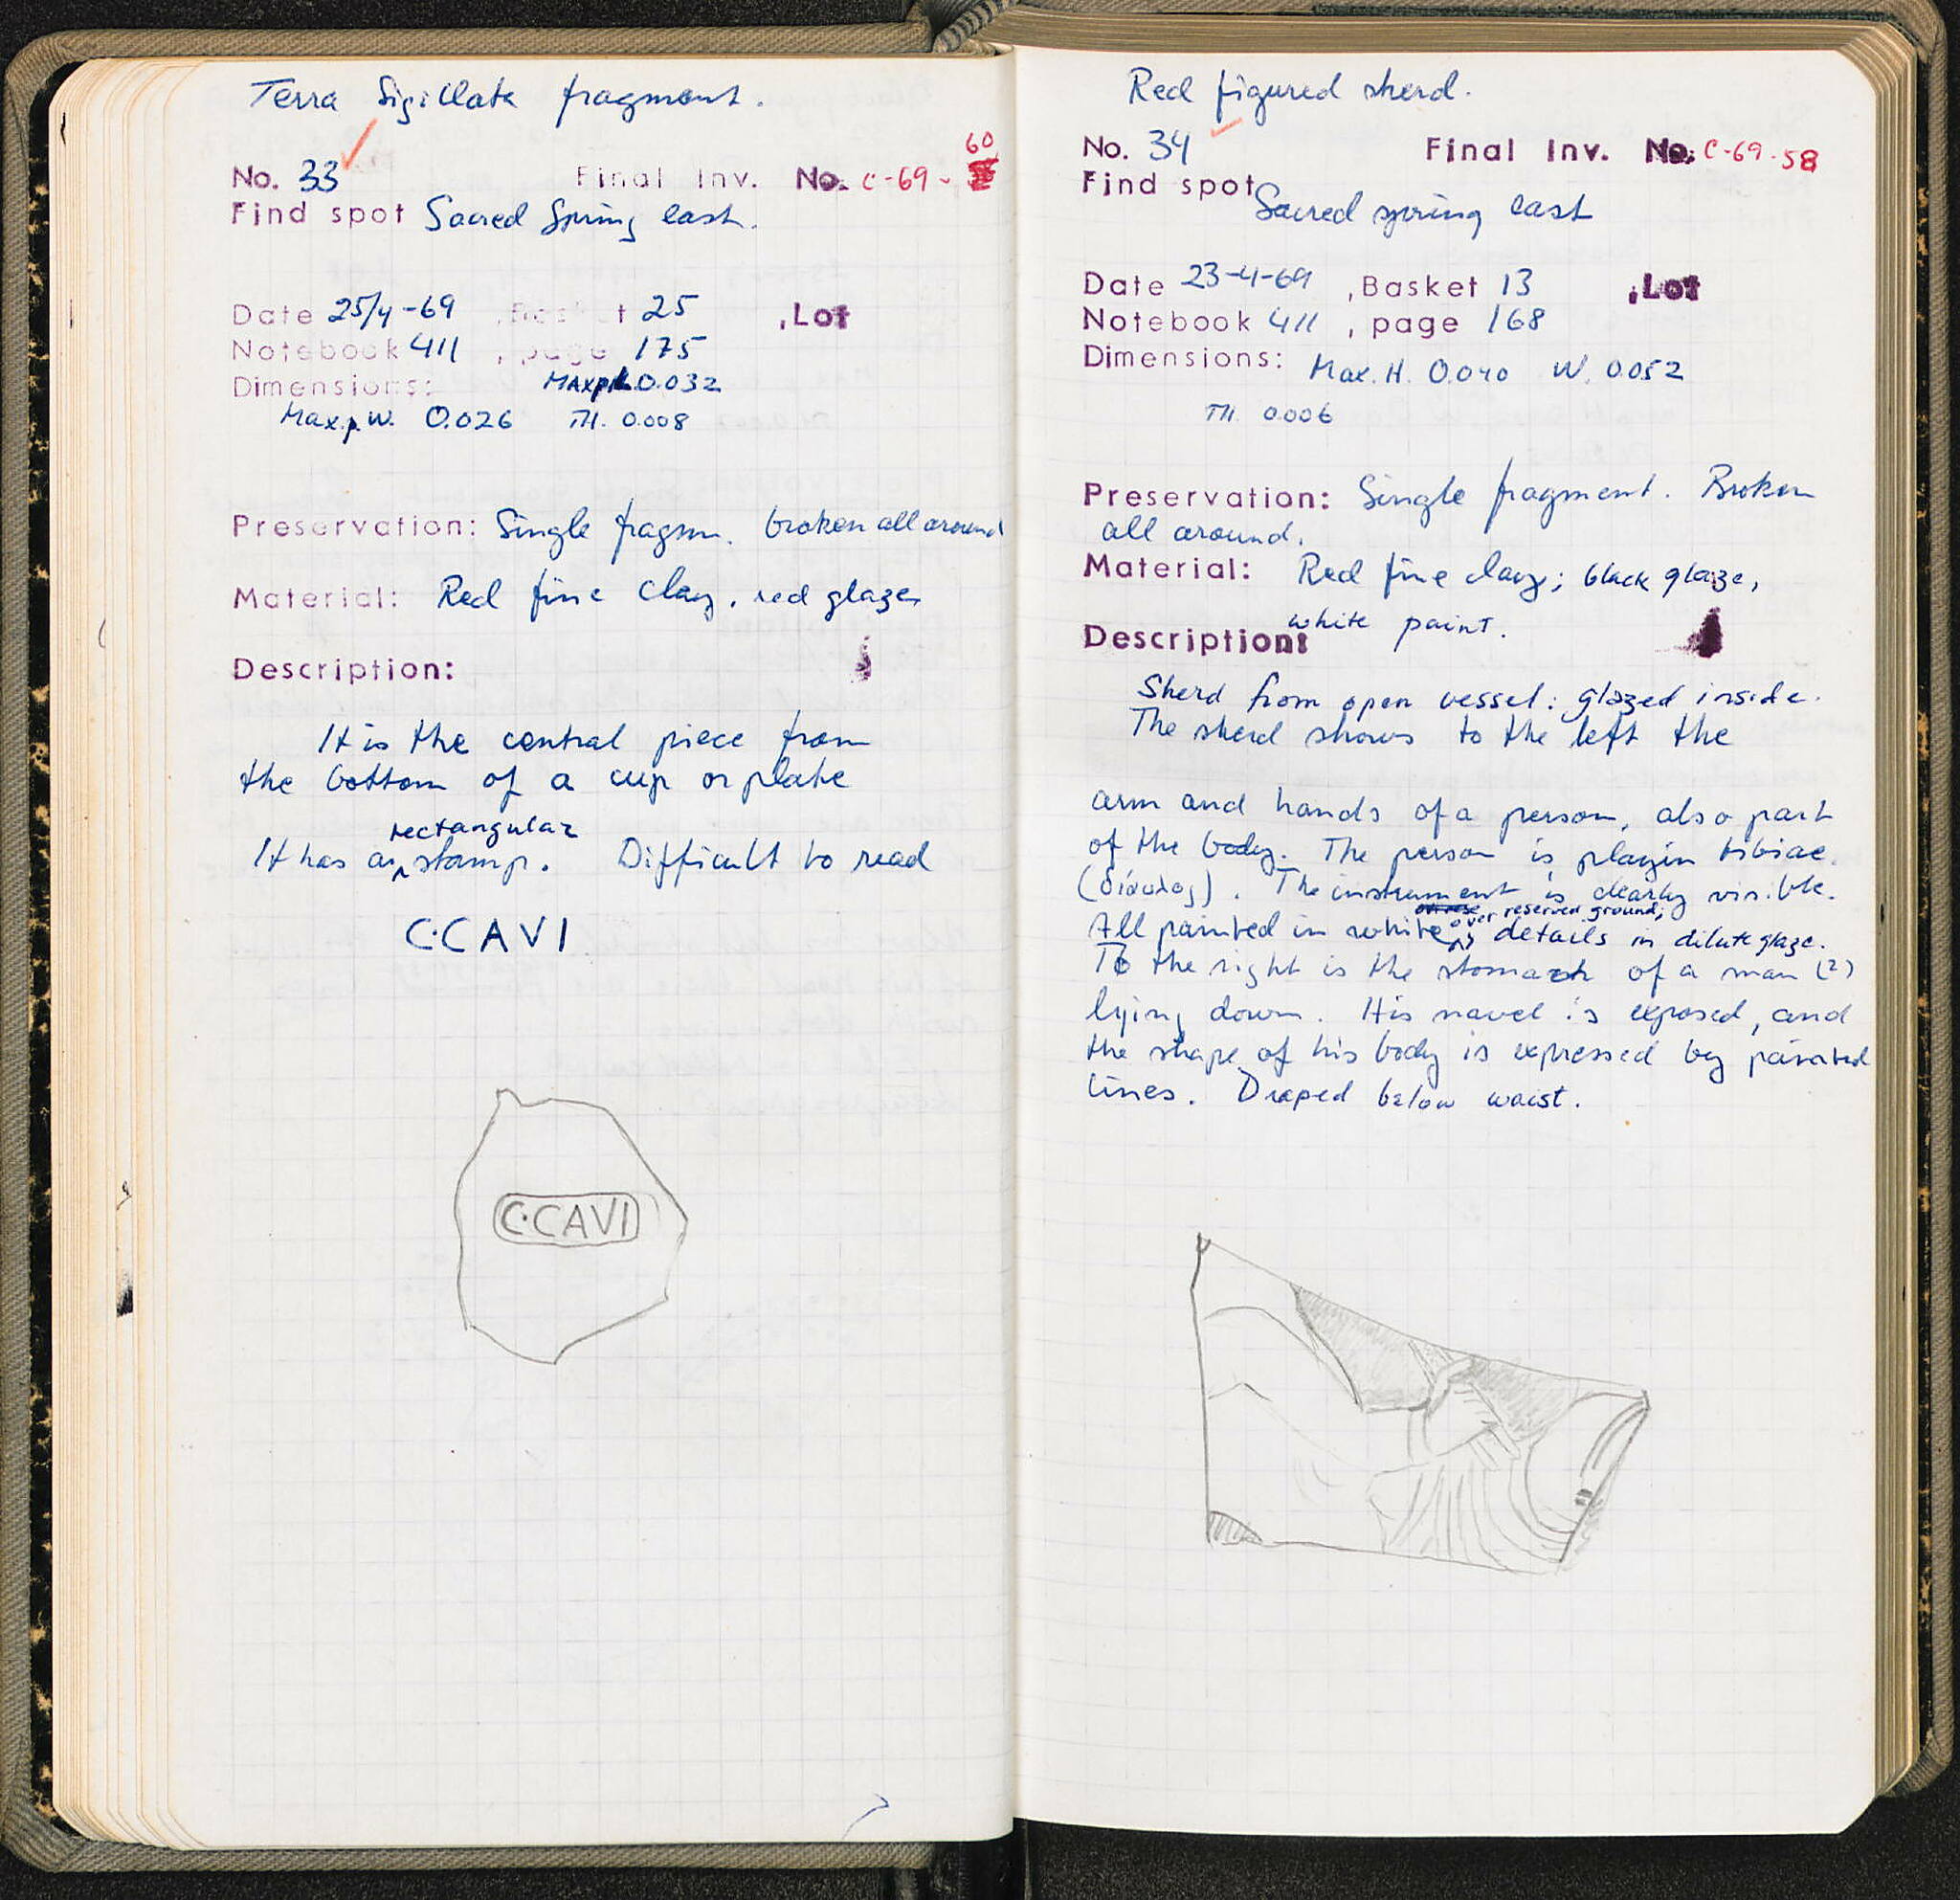 Terra Sigillata fragment.
No. 33 Final Inv. No. C-69- 60
Find spot Sacred Spring east.
Date 25/4-69 , Basket 25 , Lot
Notebook 411 , page 175
Dimensions: Max.p. 0.032
Max.p.W. 0.026 TH. 0.008
Preservation: Single fragm. broken all around
Material: Red fine clay, red glaze,
Description:
It is the central piece from
the bottom of a cup or plate
rectangular
It has a stamp. Difficult to read
C·CAVI
C·CAVI
Red figured sherd.
No. 34 Final Inv. No: C-69-58
Find spot Sacred spring east
Date 23-4-69 , Basket 13 , Lot
Notebook 411 , page 168
Dimensions: Max. H. 0.040 W. 0.052
TH. 0.006
Preservation: Single fragment. Broken
all around.
Material: Red fine clay; black glaze,
white paint.
Description:
Sherd from open vessel: glazed inside.
The sherd shows to the left the
arm and hands of a person, also part
of the body. The person is playin tibiae.
(δίαυλος). The instrument is clearly visible.
over reserved ground;
All painted in white, details in dilute glaze.
To the right is the stomach of a man (?)
lying down. His navel is exposed, and
the shape of his body is expressed by painted
lines. Draped below waist.